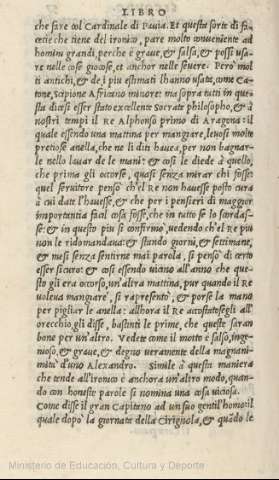 LIBRO
che fare col Cardinale di Pauia. Et questa sorte di fa
cetie che tiene del ironico, pare molto conueniente ad
homini grandi, perche è graue, & salsa, & possi usa-
re nelle cose giocose, et anchor nelle seuere. Però mol
ti antichi, & de i piu estimati l'hanno usata, come Ca-
tone, Scipione Africano minore: ma sopra tutti in que
sta dicesi esser stato excellente Socrate philosopho, & à
nostri tempi il RE Alphonso primo di Aragona: il
quale essendo una mattina per mangiare, leuossi molte
pretiose anella, che ne li diti hauea, per non bagnar-
le nello lauar de le mani: & cosi le diede à quello,
che prima gli occorse, quasi senza mirar chi fosse
quel seruitore pensò ch'el RE non hauesse posto cura
à cui date l'hauesse, & che per i pensieri di maggior
importantia facil cosa fosse, che in tutto se lo scordas-
se: & in questo piu si confirmò, uedendo ch'el RE piu
non le ridomandaua: & stando giorni, & settimane,
& mesi senza sentirne mai parola, si pensò di certo
esser sicuro: & cosi essendo uicino all'anno che que-
sto gli era occorso, un'altra mattina, pur quando il RE
uoleua mangiare, si rapresentò, & porse la mano
per pigliar le anella: allhora il RE accostatosegli all'
orecchio gli disse, bastinti le prime, che queste saran
bone per un'altro. Vedete come il motto è salso, inge-
nioso, & graue, & degno ueramente della magnani-
mità d'uno Alexandro. Simile à questa maniera
che tende all'ironico è anchora un'altro modo, quan-
do con honeste parole si nomina una cosa uiciosa.
Come disse il gran Capitano ad un suo gentil'homo: il
quale dopò la giornata della Cirignola, & quãdo le
Ministerio de Educación, Cultura y Deporte